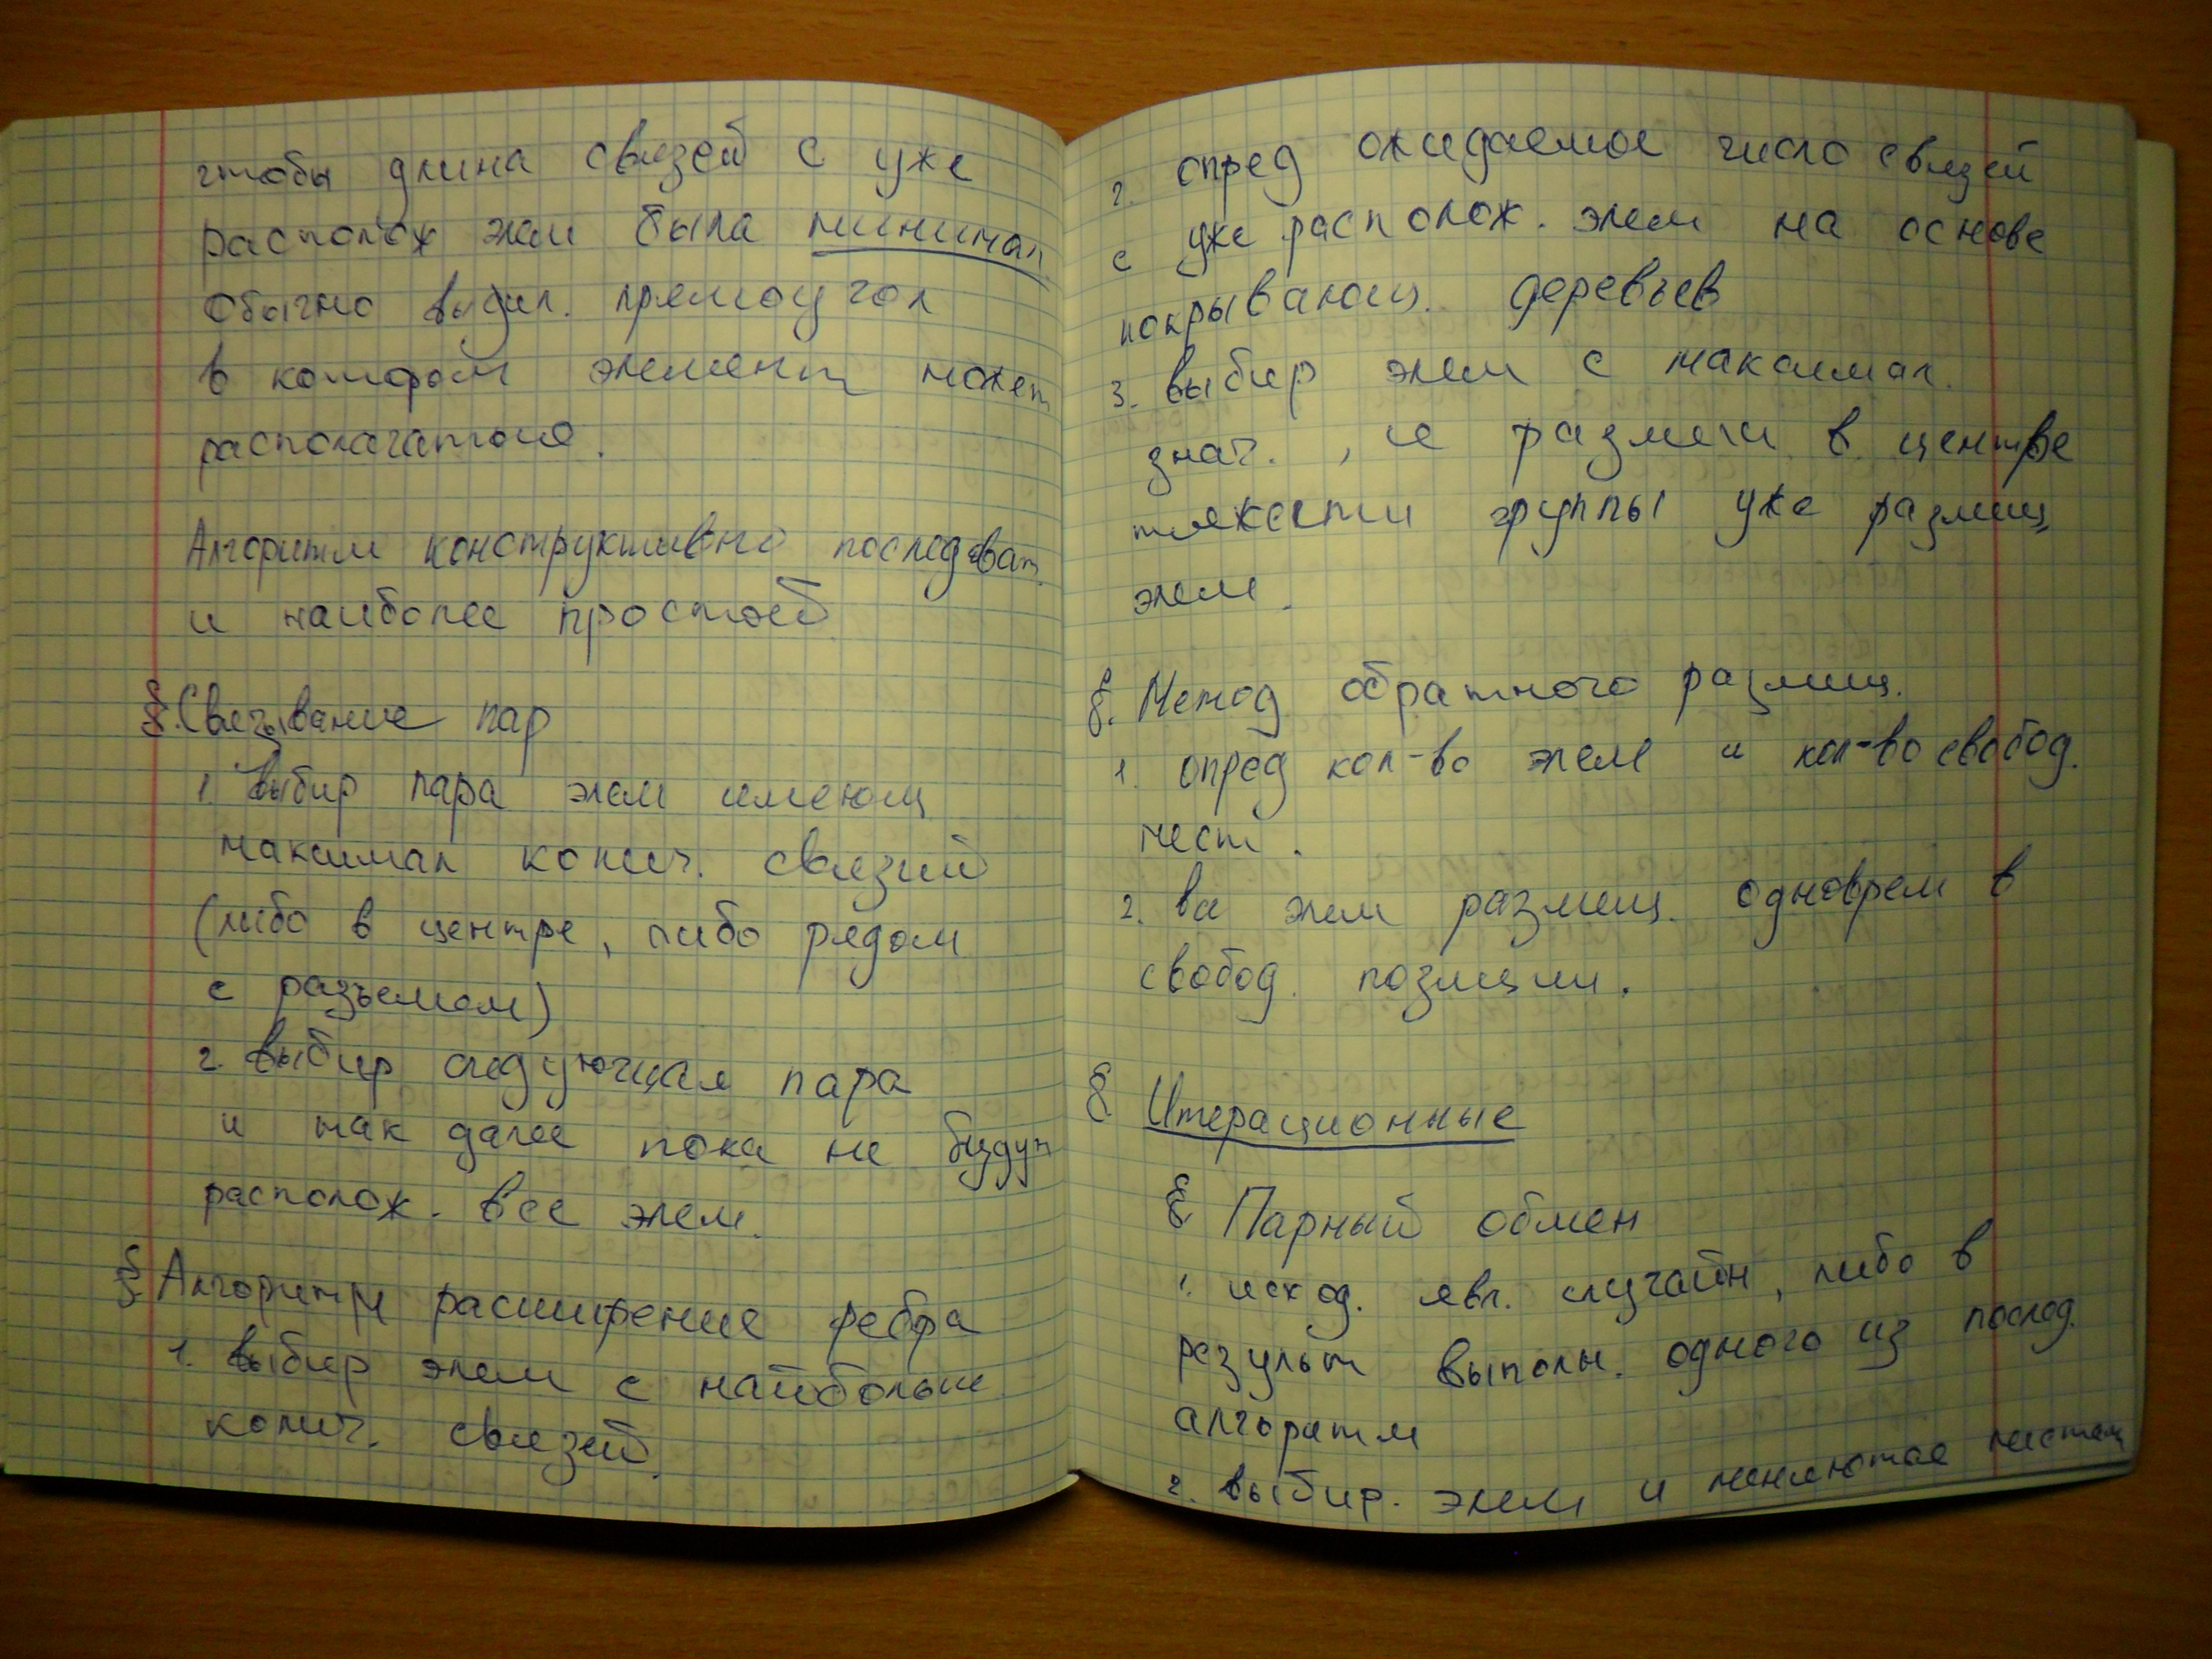 чтобы длина связей с уже
располож элем была минимал
Обычно выдел. прямоугол
в котором элемент может
располагаться.
Алгоритм конструктивно последоват.
и наиболее простой
§. Связывание пар
1. выбир пара элем имеющ
максимал колич. связий
(либо в центре, либо рядом
с разъемом)
2. выбир следующая пара
и так далее пока не будут
располож. все элем.
§ Алгоритм расширение ребра
1. выбир элем с наибольше
колич. связей.
2. опред ожидаемое число связей
с уже располож. элем на основе
покрывающ. деревьев
3. выбир элем с максимал.
знач., и размещ в центре
тяжести группы уже размещ
элем.
§. Метод обратного размещ.
1. опред кол-во элем и кол-во свобод.
мест.
2. все элем размещ. одноврем в
свобод. позиции.
§ Итерационные
§ Парный обмен
1. исход. явл. случайн, либо в
результ выполн. одного из послед.
алгоритм
2. выбир. элем и меняются местам